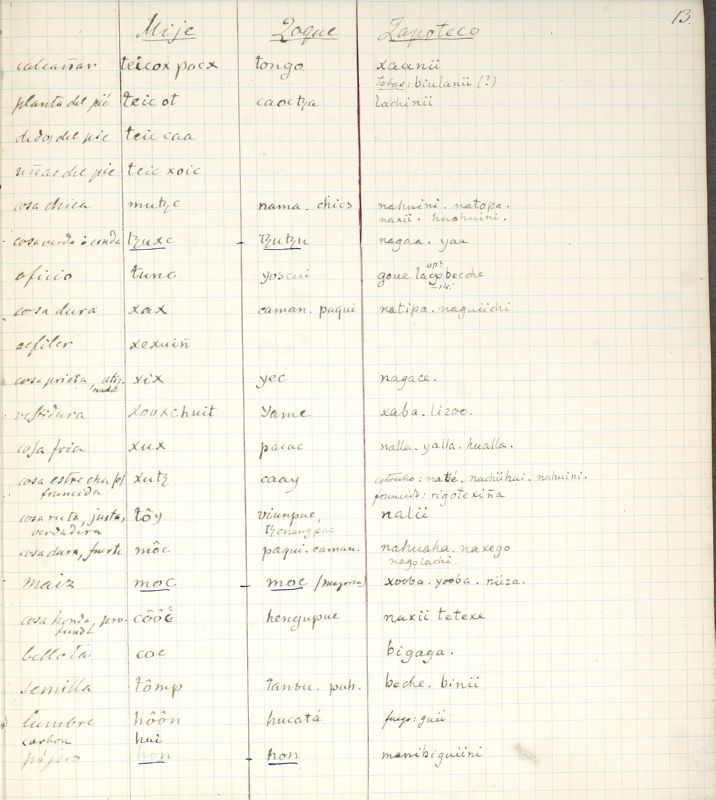 13.
Mije Zoque Zapoteco
calcañar teicox pacx tongo xaanii
tabas: biulanii (?)
planta del pié teic ot caoctza lachinii
dedos del pie teic caa
uñas del pie teic xoic
cosa chica mutzc nama. chics nahuini. natopa.
naxii. huohuini.
cosa verde ò cruda tzuxc - tzutzu nagaa. yaa
oficio tunc yoscui goue lagobecche
cosa dura xax caman. paqui natipa. naguiichi
xexuiñ
cosa prieta, xix yec nagace.
vestidura xooxchuit yame xaba. lizoo.
cosa fria xux pacac nalla. yalla. hualla.
cosa estrecha, xutz caay estrecho: naté. nachiihui. nahuini.
fruncida fruncido: rigotexiña
cosa recta, justa, tôy viunpue nalii
verdadera tzenangpue
cosa dura, fuerte môc paqui. caman. nahuaha. naxego
nagolachi.
maiz moc - moc (mazorca) xooba. yooba. niiza.
cosa honda, pro- côôc hengupue naxii tetexe
funda
bellota coc bigaga.
semilla tômp tanbu. puh. beche. binii
lumbre hôôn hucatá fuego: guii
carbon hui
pájaro hon - hon manibiguiini